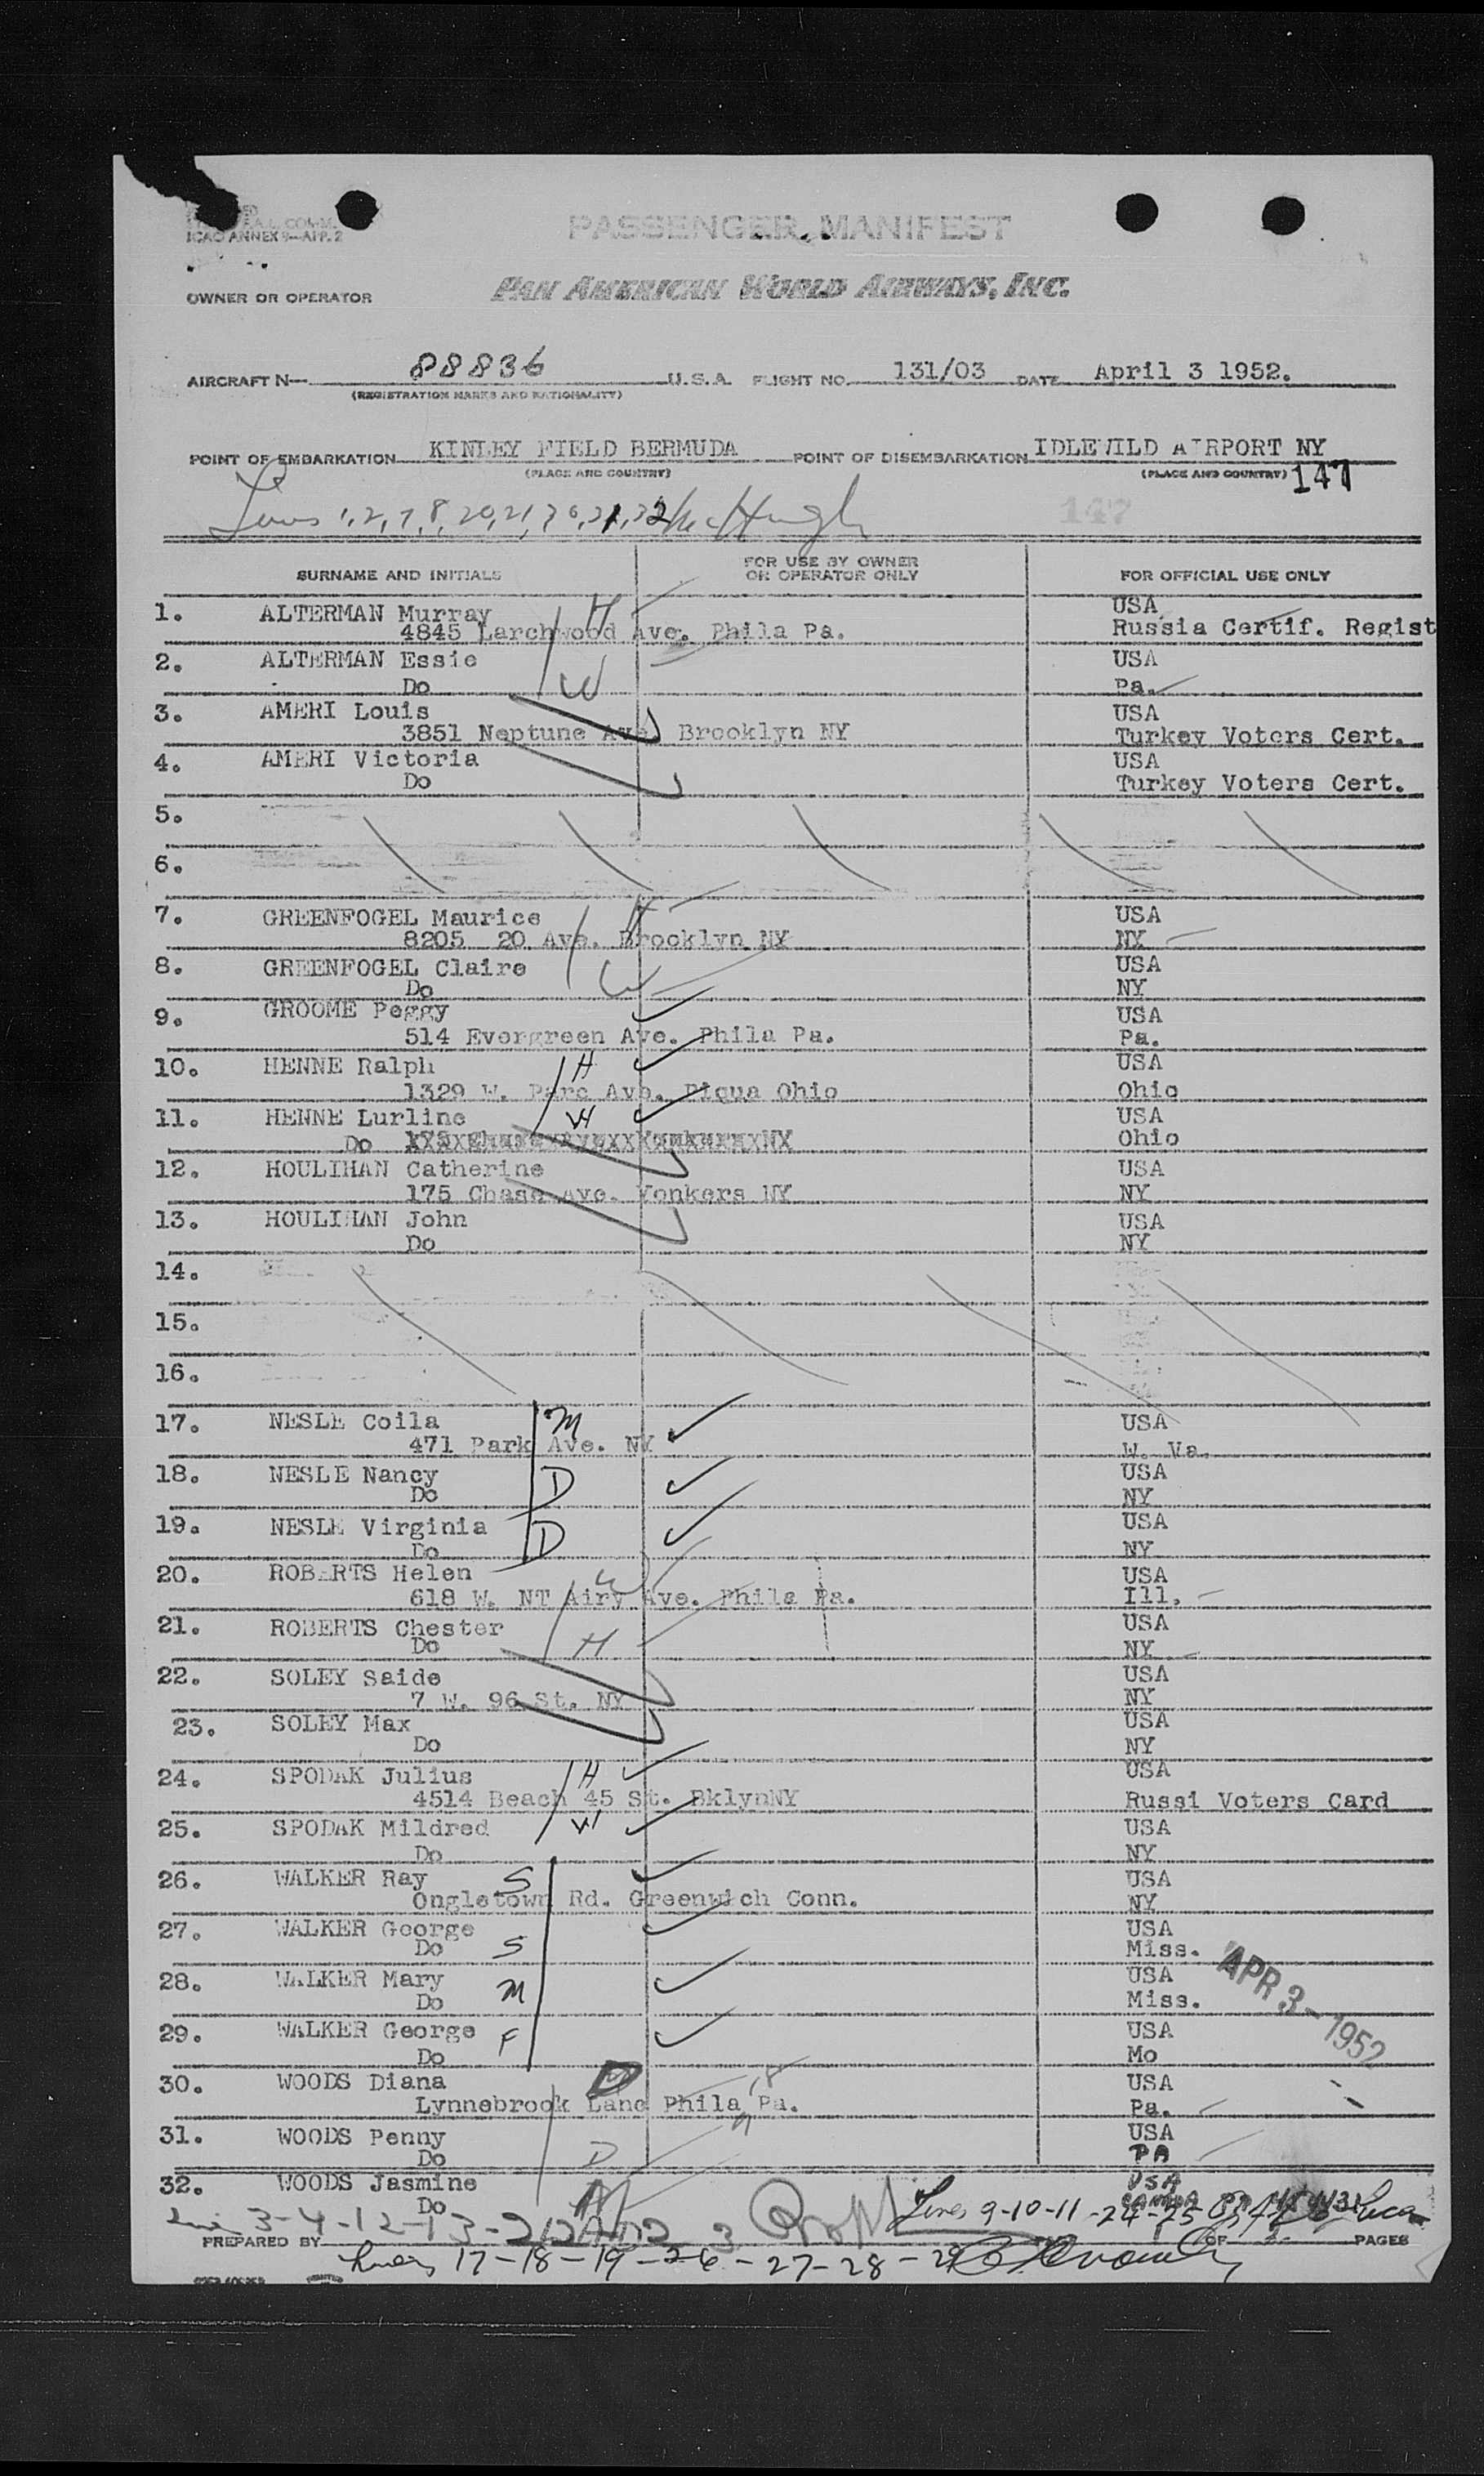 ICAO ANNEX 9—APP. 2
PASSENGER MANIFEST
OWNER OR OPERATOR PAN AMERICAN WORLD AIRWAYS, INC.
AIRCRAFT N— 88836 U.S.A. FLIGHT NO. 131/03 DATE April 3 1952.
(REGISTRATION MARKS AND NATIONALITY)
POINT OF EMBARKATION KINLEY FIELD BERMUDA POINT OF DISEMBARKATION IDLEWILD AIRPORT NY
(PLACE AND COUNTRY) (PLACE AND COUNTRY) 147
Lines 1,2,7,8,20,21,30,31,32 McHugh 147
SURNAME AND INITIALS FOR USE BY OWNER OR OPERATOR ONLY FOR OFFICIAL USE ONLY
1. ALTERMAN Murray H USA
4845 Larchwood Ave. Phila Pa. Russia Certif. Regist
2. ALTERMAN Essie W USA
Do Pa.
3. AMERI Louis USA
3851 Neptune Ave Brooklyn NY Turkey Voters Cert.
4. AMERI Victoria USA
Do Turkey Voters Cert.
5.
6.
7. GREENFOGEL Maurice H USA
8205 20 Ave. Brooklyn NY NY
8. GREENFOGEL Claire W USA
Do NY
9. GROOME Peggy USA
514 Evergreen Ave. Phila Pa. Pa.
10. HENNE Ralph H USA
1329 W. Parc Ave. Piqua Ohio Ohio
11. HENNE Lurline W USA
Do Ohio
12. HOULIHAN Catherine USA
175 Chase Ave. Yonkers NY NY
13. HOULIHAN John USA
Do NY
14.
15.
16.
17. NESLE Coila M USA
471 Park Ave. NY W. Va.
18. NESLE Nancy D USA
Do NY
19. NESLE Virginia D USA
Do NY
20. ROBERTS Helen W USA
618 W. NT Airy Ave. Phila Pa. Ill.
21. ROBERTS Chester H USA
Do NY
22. SOLEY Saide USA
7 W. 96 St. NY NY
23. SOLEY Max USA
Do NY
24. SPODAK Julius H USA
4514 Beach 45 St. BklynNY Russi Voters Card
25. SPODAK Mildred W USA
Do NY
26. WALKER Ray S USA
Ongletown Rd. Greenwich Conn. NY
27. WALKER George S USA
Do Miss.
28. WALKER Mary M USA
Do Miss.
APR 3-1952
29. WALKER George F USA
Do Mo
30. WOODS Diana D USA
Lynnebrook Lane Phila Pa. Pa.
31. WOODS Penny D USA
Do PA
32. WOODS Jasmine M USA
Do CANADA
Lines 3-4-12-13-22 AND 23 Lines 9-10-11-24-25
PREPARED BY OF PAGES
Lines 17-18-19-26-27-28-29